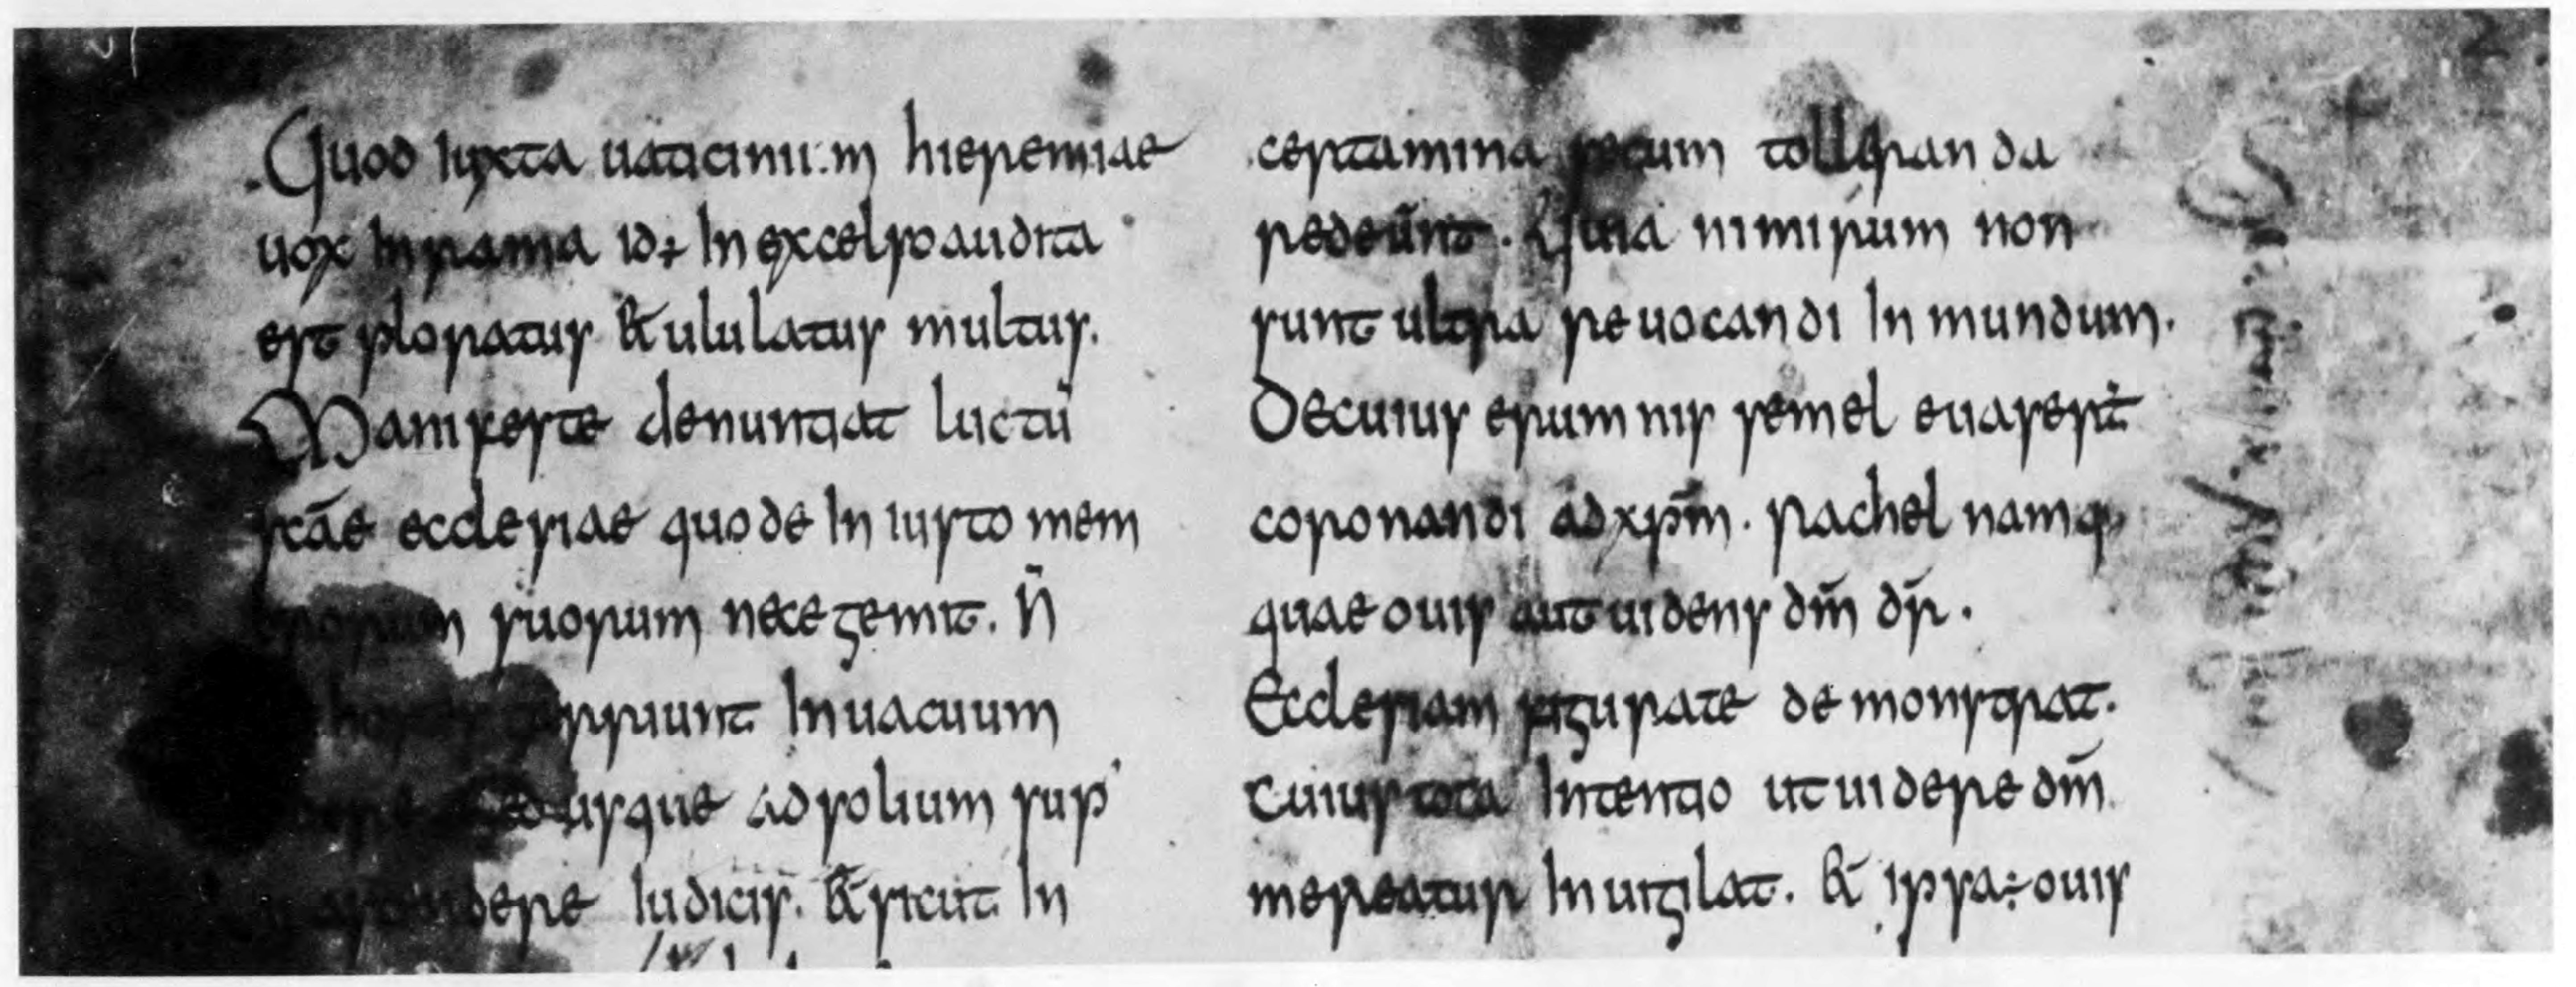 Quod iuxta uaticinium hieremiae
uox In rama id÷ In excelso audita
est ploratus & ululatus multus.
Manifeste denuntiat luctū
scāe ecclesiae quo de In iusto mem
suorum nece gemit. n̄
uerunt In uacuum
usque ad solium sup'
dere Iudicis. & sicut In
certamina secum tolleranda
redeūnt. Quia nimirum non
sunt ultra reuocandi In mundum.
De cuius erumnis semel euaserit
coronandi ad xp̄m. rachel namq;
quae ouis aut uidens dm̄ dr̄.
Ecclesiam figurate demonstrat.
Cuius tota Intentio ut uidere dm̄
mereatur Inuigilat. & ipsa ÷ ouis